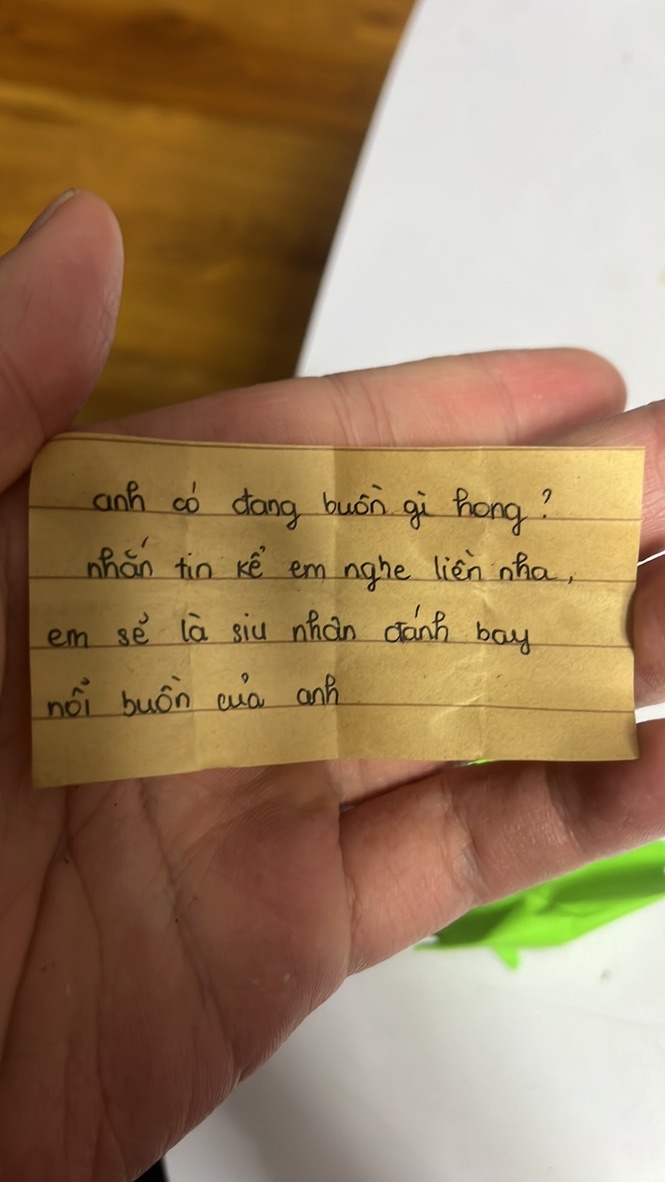 anh có đang buồn gì hong?
nhắn tin kể em nghe liền nha,
em sẽ là siu nhân đánh bay
nỗi buồn của anh